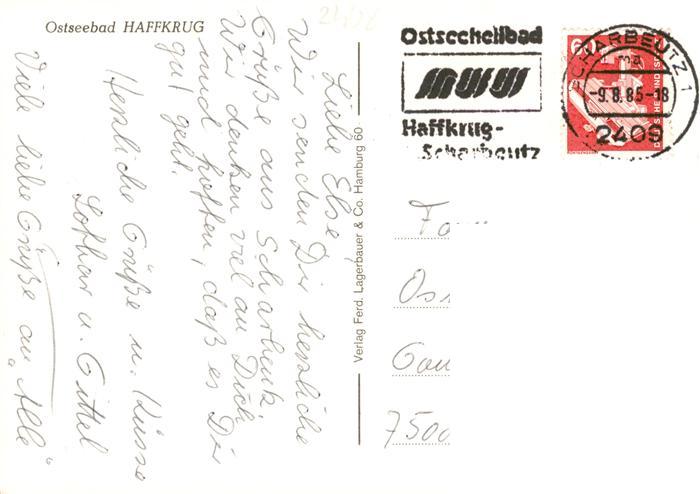 Ostseebad HAFFKRUG
Liebe Else,
Wir senden Dir herzliche
Grüße aus Scharbeutz.
Wir denken viel an Dich
und hoffen, daß es Dir
gut geht.
Herzliche Grüße u. Küsse
Lothar u. Gittel
Viele liebe Grüße an "Alle"
Verlag Ferd. Lagerbauer & Co. Hamburg 60
Ostseeheilbad
Haffkrug-
Scharbeutz
SCHARBEUTZ 1
ma
-9.8.85-18
2409
60
7500